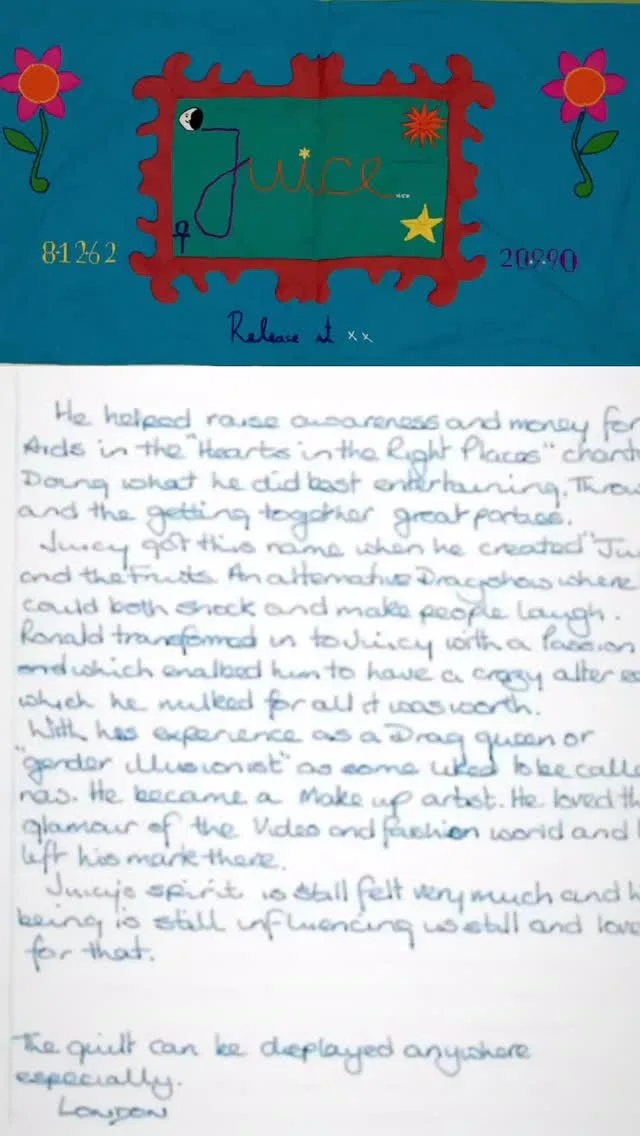 Juice...
8·12·62
20·9·90
Release it x x
He helped raise awareness and money for
Aids in the "Hearts in the Right Places" charity
Doing what he did best entertaining. Throw
and the getting together great parties.
Juicy got this name when he created "Ju
and the Fruits. An alternative Dragshow where
could both shock and make people laugh.
Ronald transformed in to Juicy with a Passion
and which enalbed him to have a crazy alter e
which he mulked for all it was worth.
With his experience as a Drag queen or
"gender illusionist" as some liked to be calle
nas. He became a Make up artist. He loved th
glamour of the Video and fashion world and
left his mark there.
Juicys spirit is still felt very much and h
being is still influencing us still and love
for that.
The quilt can be displayed anywhere
especially.
LONDON